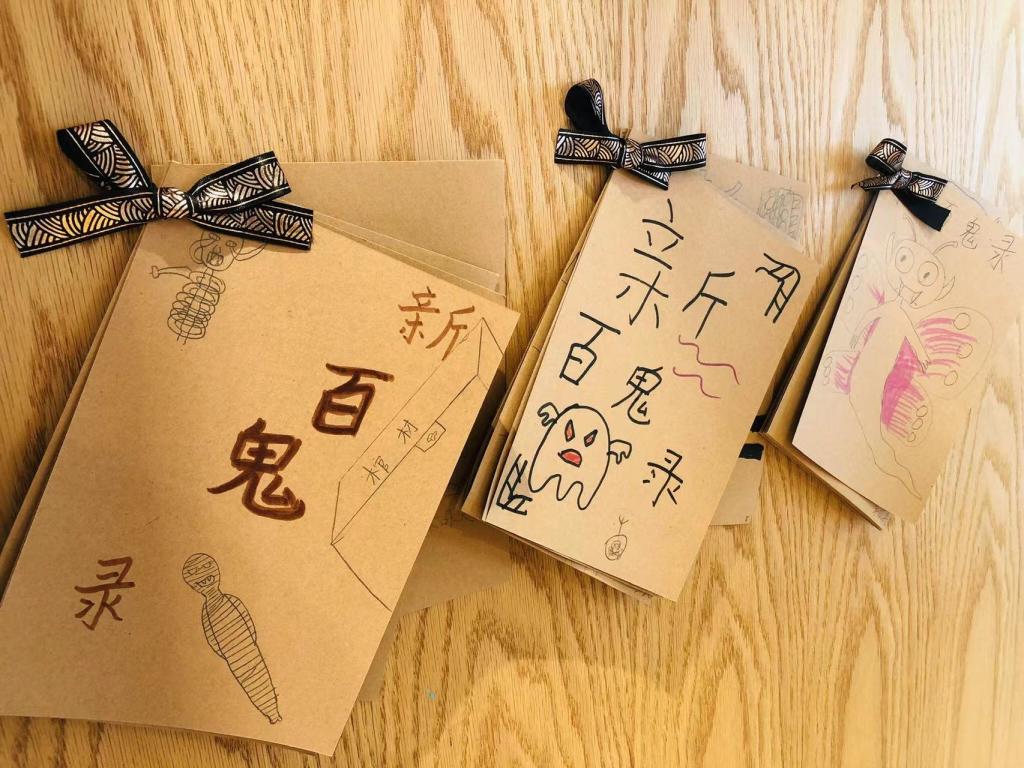 新百鬼录
棺材
新百鬼录
鬼录